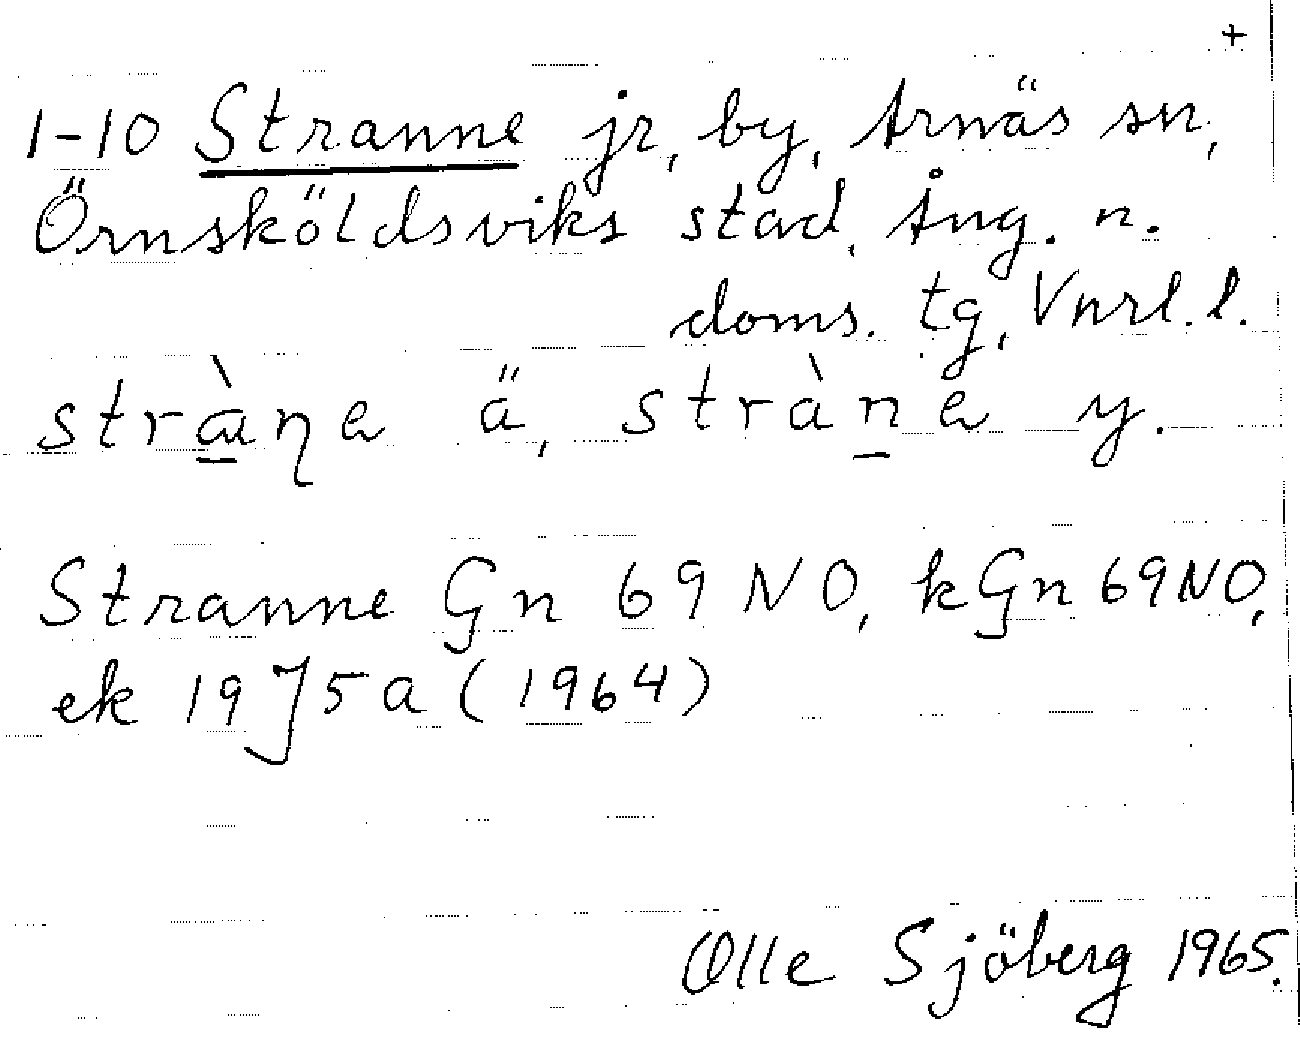 +
1-10 Stranne jr, by, Arnäs sn,
Örnsköldsviks stad, Ång. n.
doms. tg, Vnrl. l.
stràn̡e ä, stràn̲e y.
Stranne Gn 69 NO, kGn 69 NO,
ek 19 J5a (1964)
Olle Sjöberg 1965.